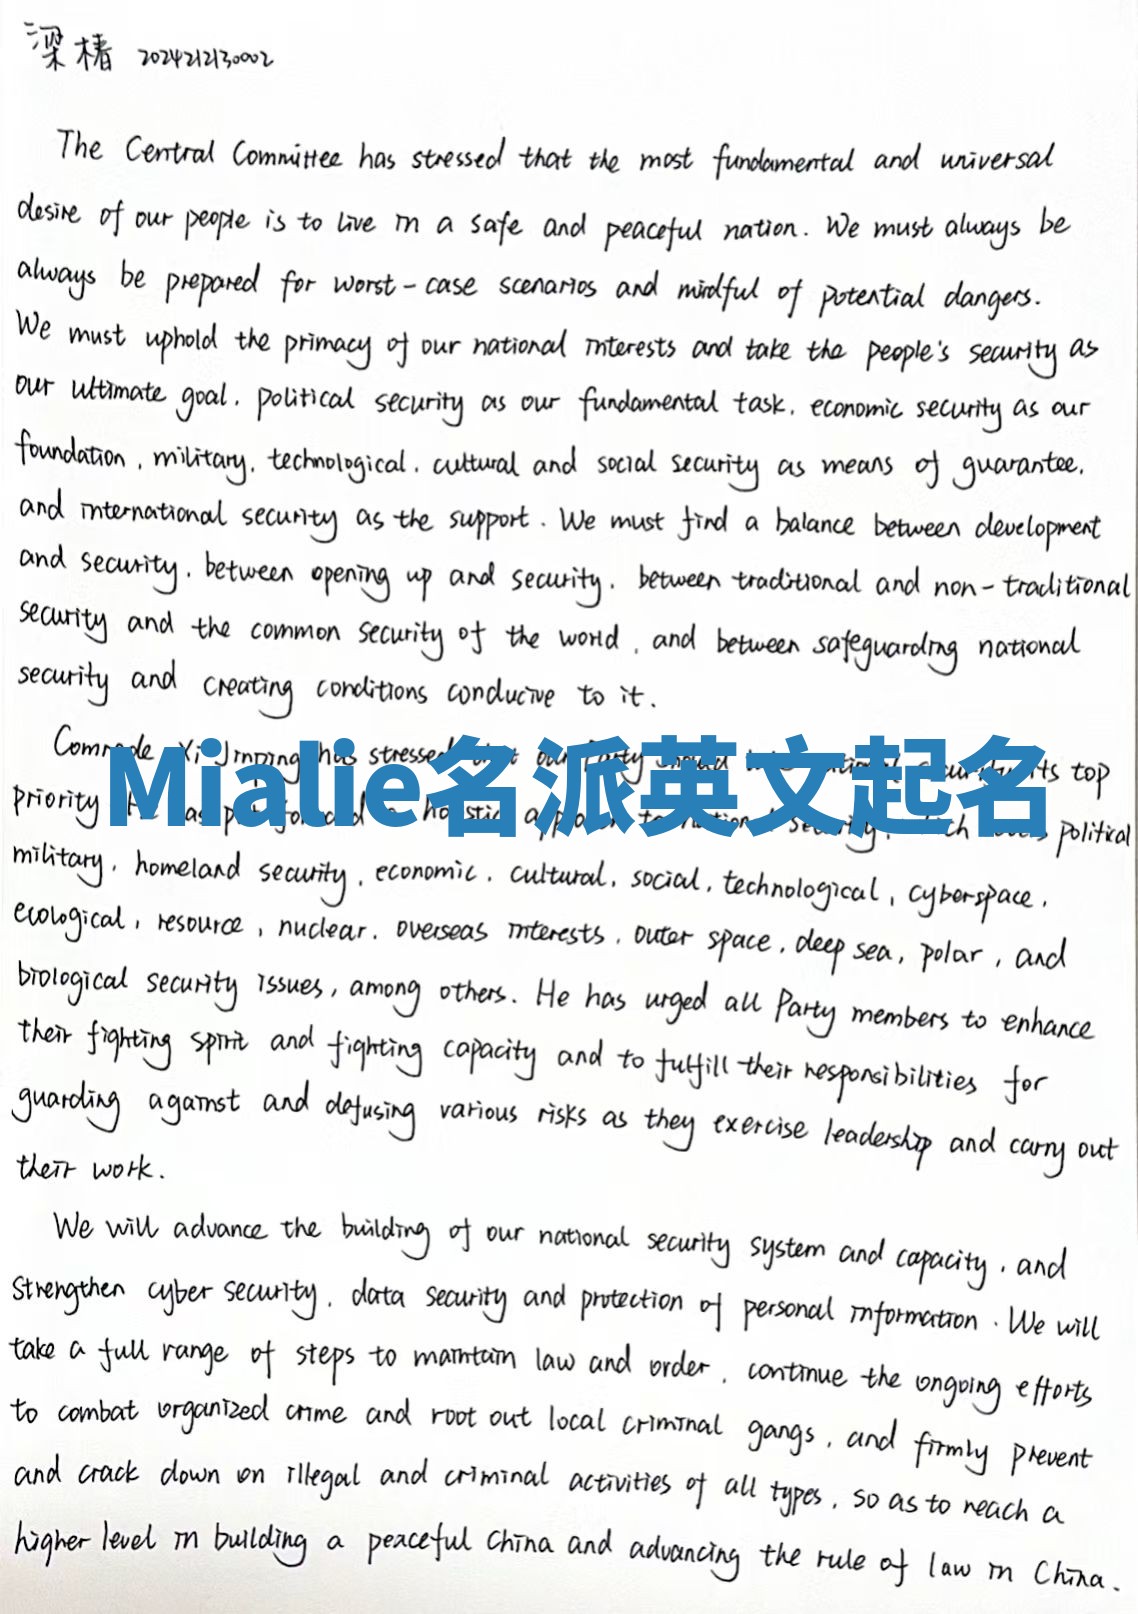 梁椿 2024212130002
The Central Committee has stressed that the most fundamental and universal
desire of our people is to live in a safe and peaceful nation. We must always be
always be prepared for worst-case scenarios and mindful of potential dangers.
We must uphold the primacy of our national interests and take the people's security as
our ultimate goal, political security as our fundamental task, economic security as our
foundation, military, technological, cultural and social security as means of guarantee,
and international security as the support. We must find a balance between development
and security, between opening up and security, between traditional and non-traditional
security and the common security of the world, and between safeguarding national
security and creating conditions conducive to it.
Comrade Xi Jinping has stressed our Party top
Mialie名派英文起名
priority political
military, homeland security, economic, cultural, social, technological, cyberspace,
ecological, resource, nuclear, overseas interests, outer space, deep sea, polar, and
biological security issues, among others. He has urged all Party members to enhance
their fighting spirit and fighting capacity and to fulfill their responsibilities for
guarding against and defusing various risks as they exercise leadership and carry out
their work.
We will advance the building of our national security system and capacity, and
strengthen cyber security, data security and protection of personal information. We will
take a full range of steps to maintain law and order, continue the ongoing efforts
to combat organized crime and root out local criminal gangs, and firmly prevent
and crack down on illegal and criminal activities of all types, so as to reach a
higher level in building a peaceful China and advancing the rule of law in China.